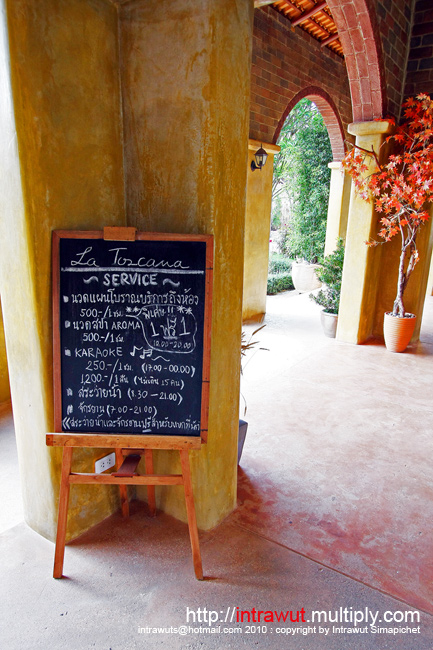 La Toscana
SERVICE
นวดแผนโบราณบริการถึงห้อง
500.-/1ชม.
นวดสปา AROMA
500.-/1ชม.
1 ฟรี 1
12.00-20.00
KARAOKE
250.-/1ชม. (17.00-00.00)
1200.-/1คืน (ไม่เกิน 15 คน)
สระว่ายน้ำ (7.30-21.00)
จักรยาน (7.00-21.00)
(สระว่ายน้ำและจักรยานฟรีสำหรับแขกที่พัก)
http://intrawut.multiply.com
intrawuts@hotmail.com 2010 : copyright by Intrawut Simapichet